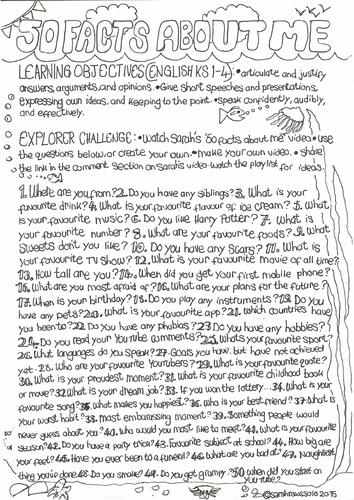 50 FACTS ABOUT ME
LEARNING OBJECTIVES (ENGLISH KS 1-4): • articulate and justify
answers, arguments, and opinions. • Give short speeches and presentations,
expressing own ideas, and keeping to the point. • speak confidently, audibly,
and effectively.
EXPLORER CHALLENGE: • Watch Sarah's '50 facts about me' video • use
the questions below, or create your own. • make your own video. • share
the link in the comment section on Sarah's video. watch the playlist for ideas.
1. Where are you from? 2. Do you have any siblings? 3. What is your
favourite drink? 4. What is your favourite flavour of ice cream? 5. What
is your favourite music? 6. Do you like Harry Potter? 7. What is
your favourite number? 8. What are your favourite foods? 9. What
sweets don't you like? 10. Do you have any scars? 11. What is your
favourite TV show? 12. What is your favourite movie of all time?
13. How tall are you? 14. When did you get your first mobile phone?
15. What are you most afraid of? 16. What are your plans for the future?
17. When is your birthday? 18. Do you play any instruments? 19. Do you
have any pets? 20. What is your favourite app? 21. Which countries have
you been to? 22. Do you have any phobias? 23 Do you have any hobbies?
24. Do you read your YouTube comments? 25. Whats your favourite sport?
26. What languages do you speak? 27. Goals you have, but have not achieved
yet. 28. Who are your favourite YouTubers? 29. What is your favourite quote?
30. What is your proudest moment? 31. What is your favourite childhood book
or movie? 32 What is your dream job? 33. If you won the lottery... 34. What is your
favourite song? 35. What makes you happiest? 36. Who is your best friend? 37. What is
your worst habit? 38. Most embarrassing moment? 39. Something people would
never guess about you? 40. Who would you most like to meet? 41. What is your favourite
season? 42. Do you have a party trick? 43. Favourite subject at school? 44. How big are
your feet? 45. Have you ever been to a funeral? 46. What are you bad at? 47. Naughtiest
thing you've done. 48. Do you smoke? 49. Do you get grumpy? 50 When did you start on
YouTube?
@sarahrowsolo 2015